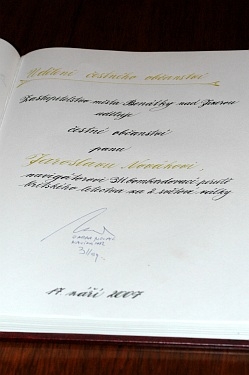 Udělení čestného občanství
Zastupitelstvo města Benátky nad Jizerou
uděluje
čestné občanství
panu
Jaroslavu Novákovi,
navigátorovi 311 bombardovací perutě
britského letectva za 2. světové války
311
17. září 2007